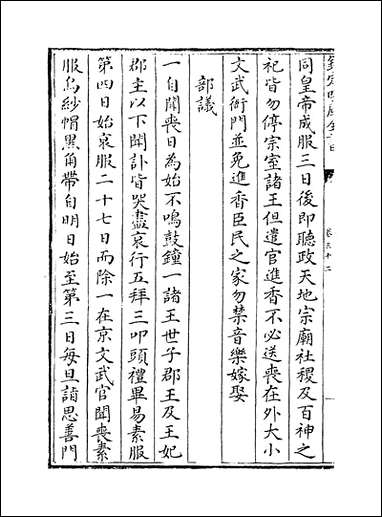 同皇帝成服三日後即聽政天地宗廟社稷及百神之
祀皆勿停宗室諸王但遣官進香不必送喪在外大小
文武衙門並免進香臣民之家勿禁音樂嫁娶
部議
一自聞喪日為始不鳴鼓鐘一諸王世子郡王及王妃
郡主以下聞訃皆哭盡哀行五拜三叩頭禮畢易素服
第四日始衰服二十七日而除一在京文武官聞喪素
服烏紗帽黑角帶自明日始至第三日每旦詣思善門